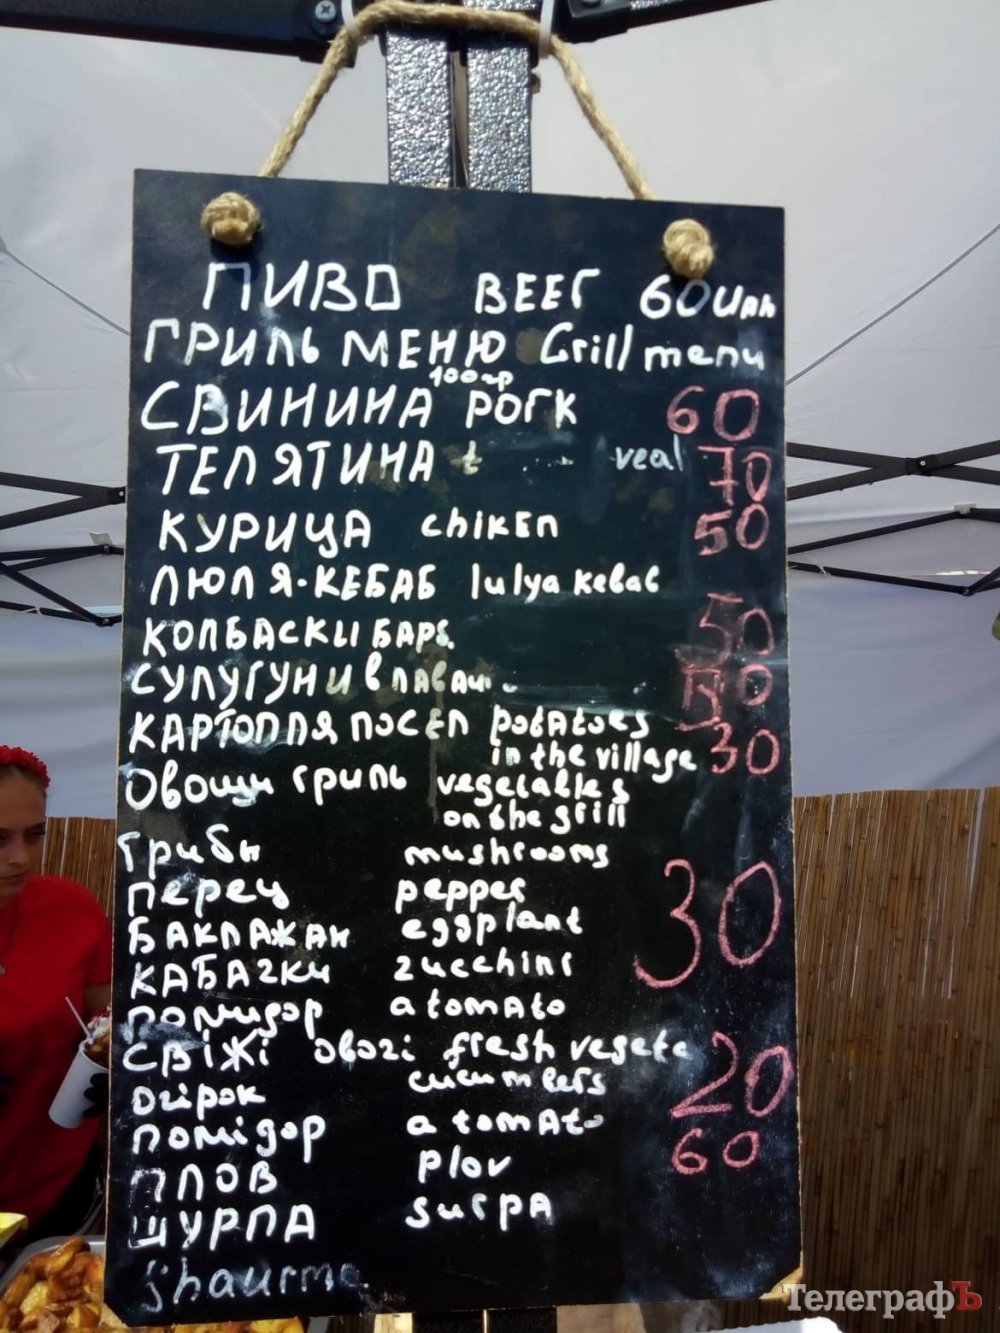 ПИВО BEEГ 60 UAh
ГРИЛЬ МЕНЮ Grill menu
100гр
СВИНИНА РОГК 60
ТЕЛЯТИНА veal 70
КУРИЦА chiкEn 50
ЛЮЛЯ-КЕБАБ lulya кebab
КОЛБАСКИ БАРБ. 50
СУЛУГУНИ В ЛАВАШ. 50
КАРТОПЛЯ ПОСЕЛ potAtoes
in the village 30
Овощи гриль vegetables
on the grill
Грибы mushrooms
перец pepper
БАКЛАЖАН eggplant 30
КАБАЧКИ zucchini
помидор a tomAto
СВІЖІ овочі fresh vegete
огірок cucumbers 20
помідор a tomAto
ПЛОВ plov 60
ШУРПА surpA
Shaurma
ТелеграфЪ